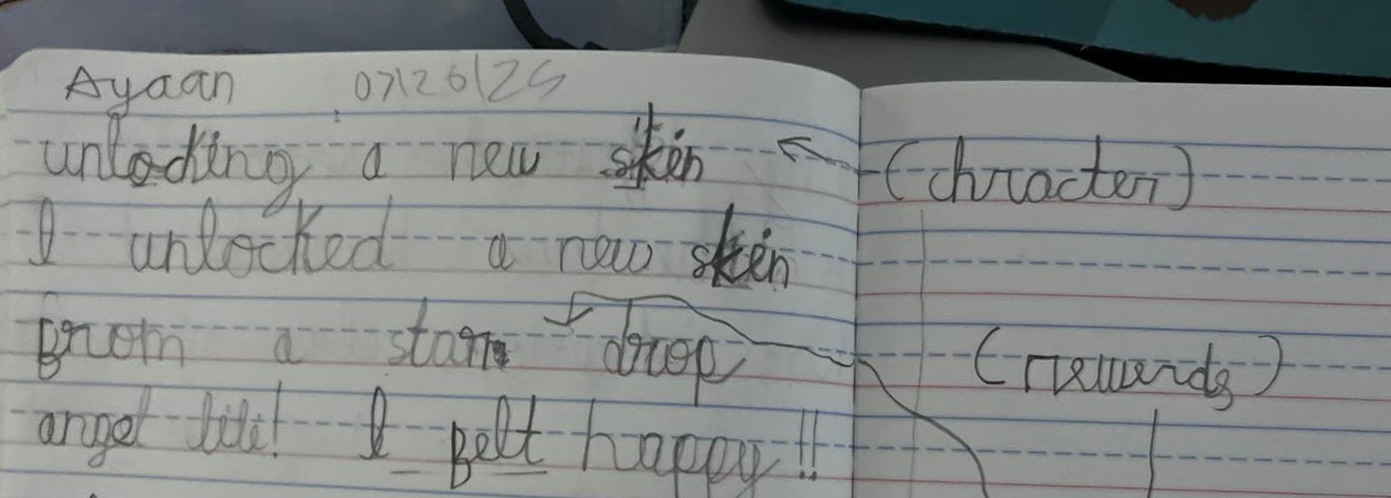 Ayaan 07/26/25
unlocking a new skin
(chracter)
I unlocked a new skin
From a starr drop
(rewerds)
angel lili! I Felt happy!!